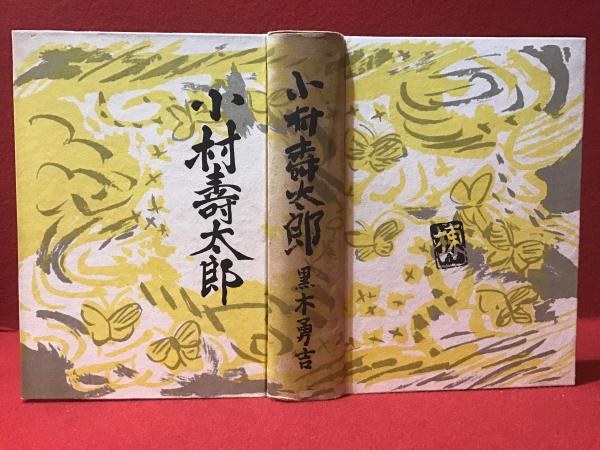 小村壽太郎
小村壽太郎
黒木勇吉